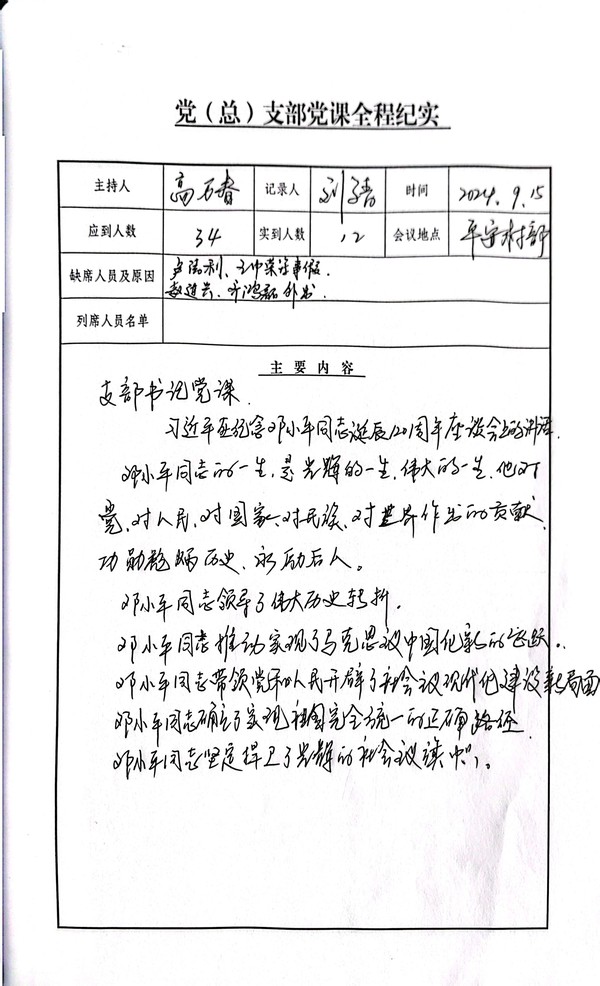 党（总）支部党课全程纪实
主持人 高万春 记录人 时间 2024.9.15
应到人数 34 实到人数 12 会议地点 平安村部
缺席人员及原因 事假.
外出.
列席人员名单
主要内容
支部书记党课.
习近平在纪念邓小平同志诞辰120周年座谈会上的讲话.
邓小平同志的一生,是光辉的一生,伟大的一生,他对
党、对人民、对国家、对民族、对世界作出的贡献,
功勋彪炳历史、永励后人。
邓小平同志领导了伟大历史转折.
邓小平同志推动实现了马克思主义中国化新的飞跃。
邓小平同志带领党和人民开辟了社会主义现代化建设新局面
邓小平同志确立了实现祖国完全统一的正确路径
邓小平同志坚定捍卫了光辉的社会主义旗帜。